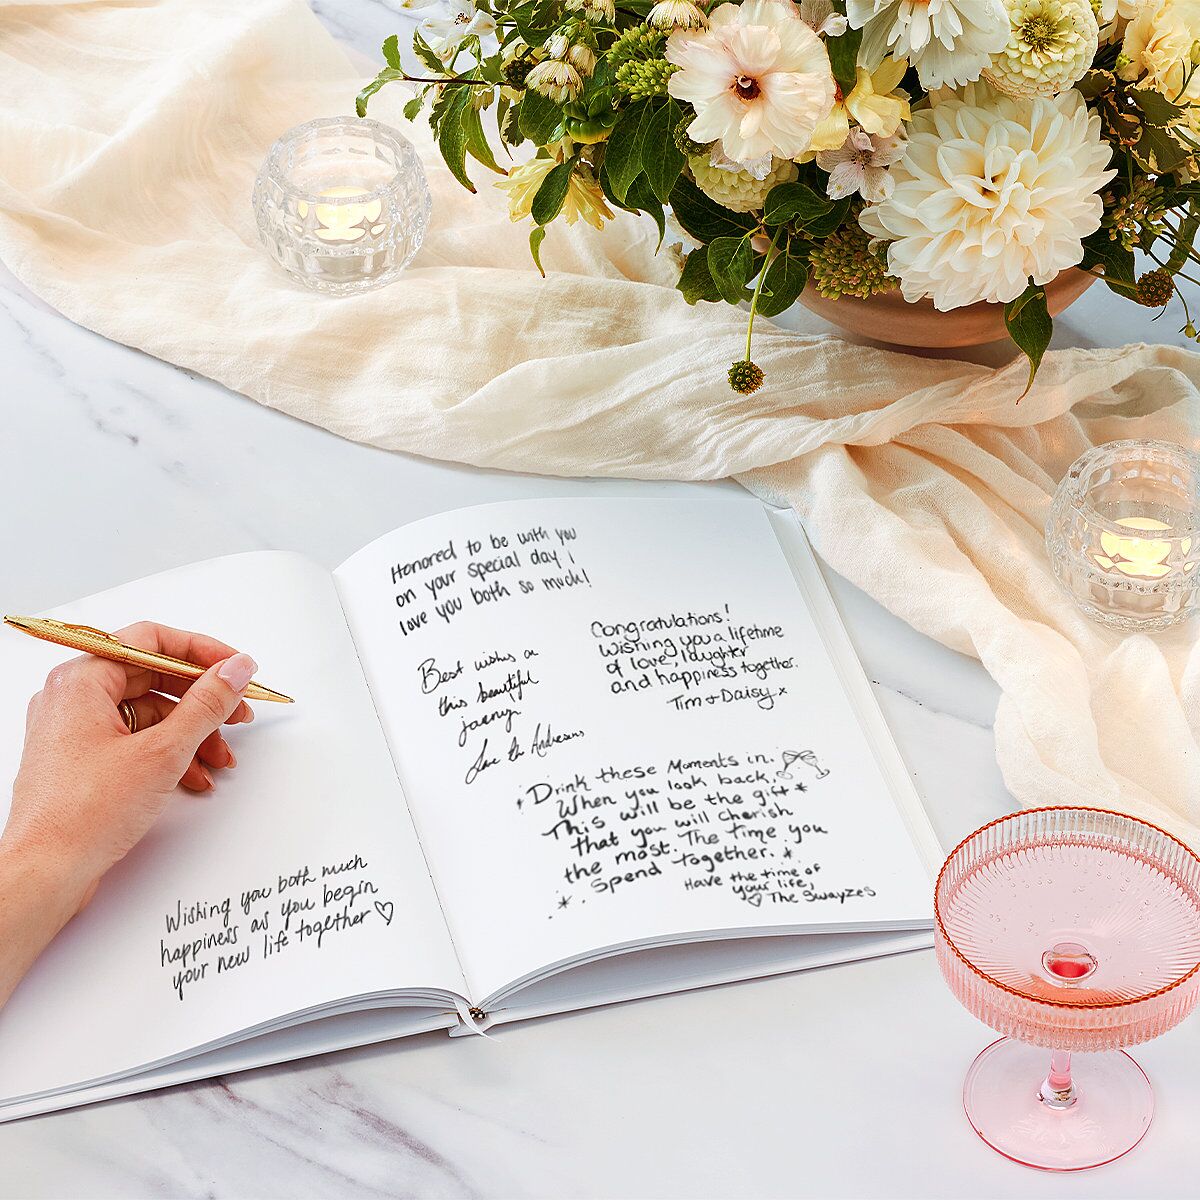 Honored to be with you
on your special day I
love you both so much!
Congratulations!
Wishing you a lifetime
of love, laughter
and happiness together.
Tim + Daisy x
Best wishes on
this beautiful
journey
Love the
Drink these Moments in.
When you look back,
This will be the gift *
that you will cherish
the most. The time you
spend together. *
Have the time of
your life,
♡ The Swayzes
Wishing you both much
happiness as you begin
your new life together ♡